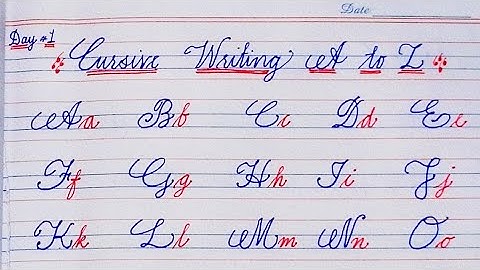 Date
Day #1
Cursive Writing A to Z
Aa Bb Cc Dd Ee
Ff Gg Hh Ii Jj
Kk Ll Mm Nn Oo